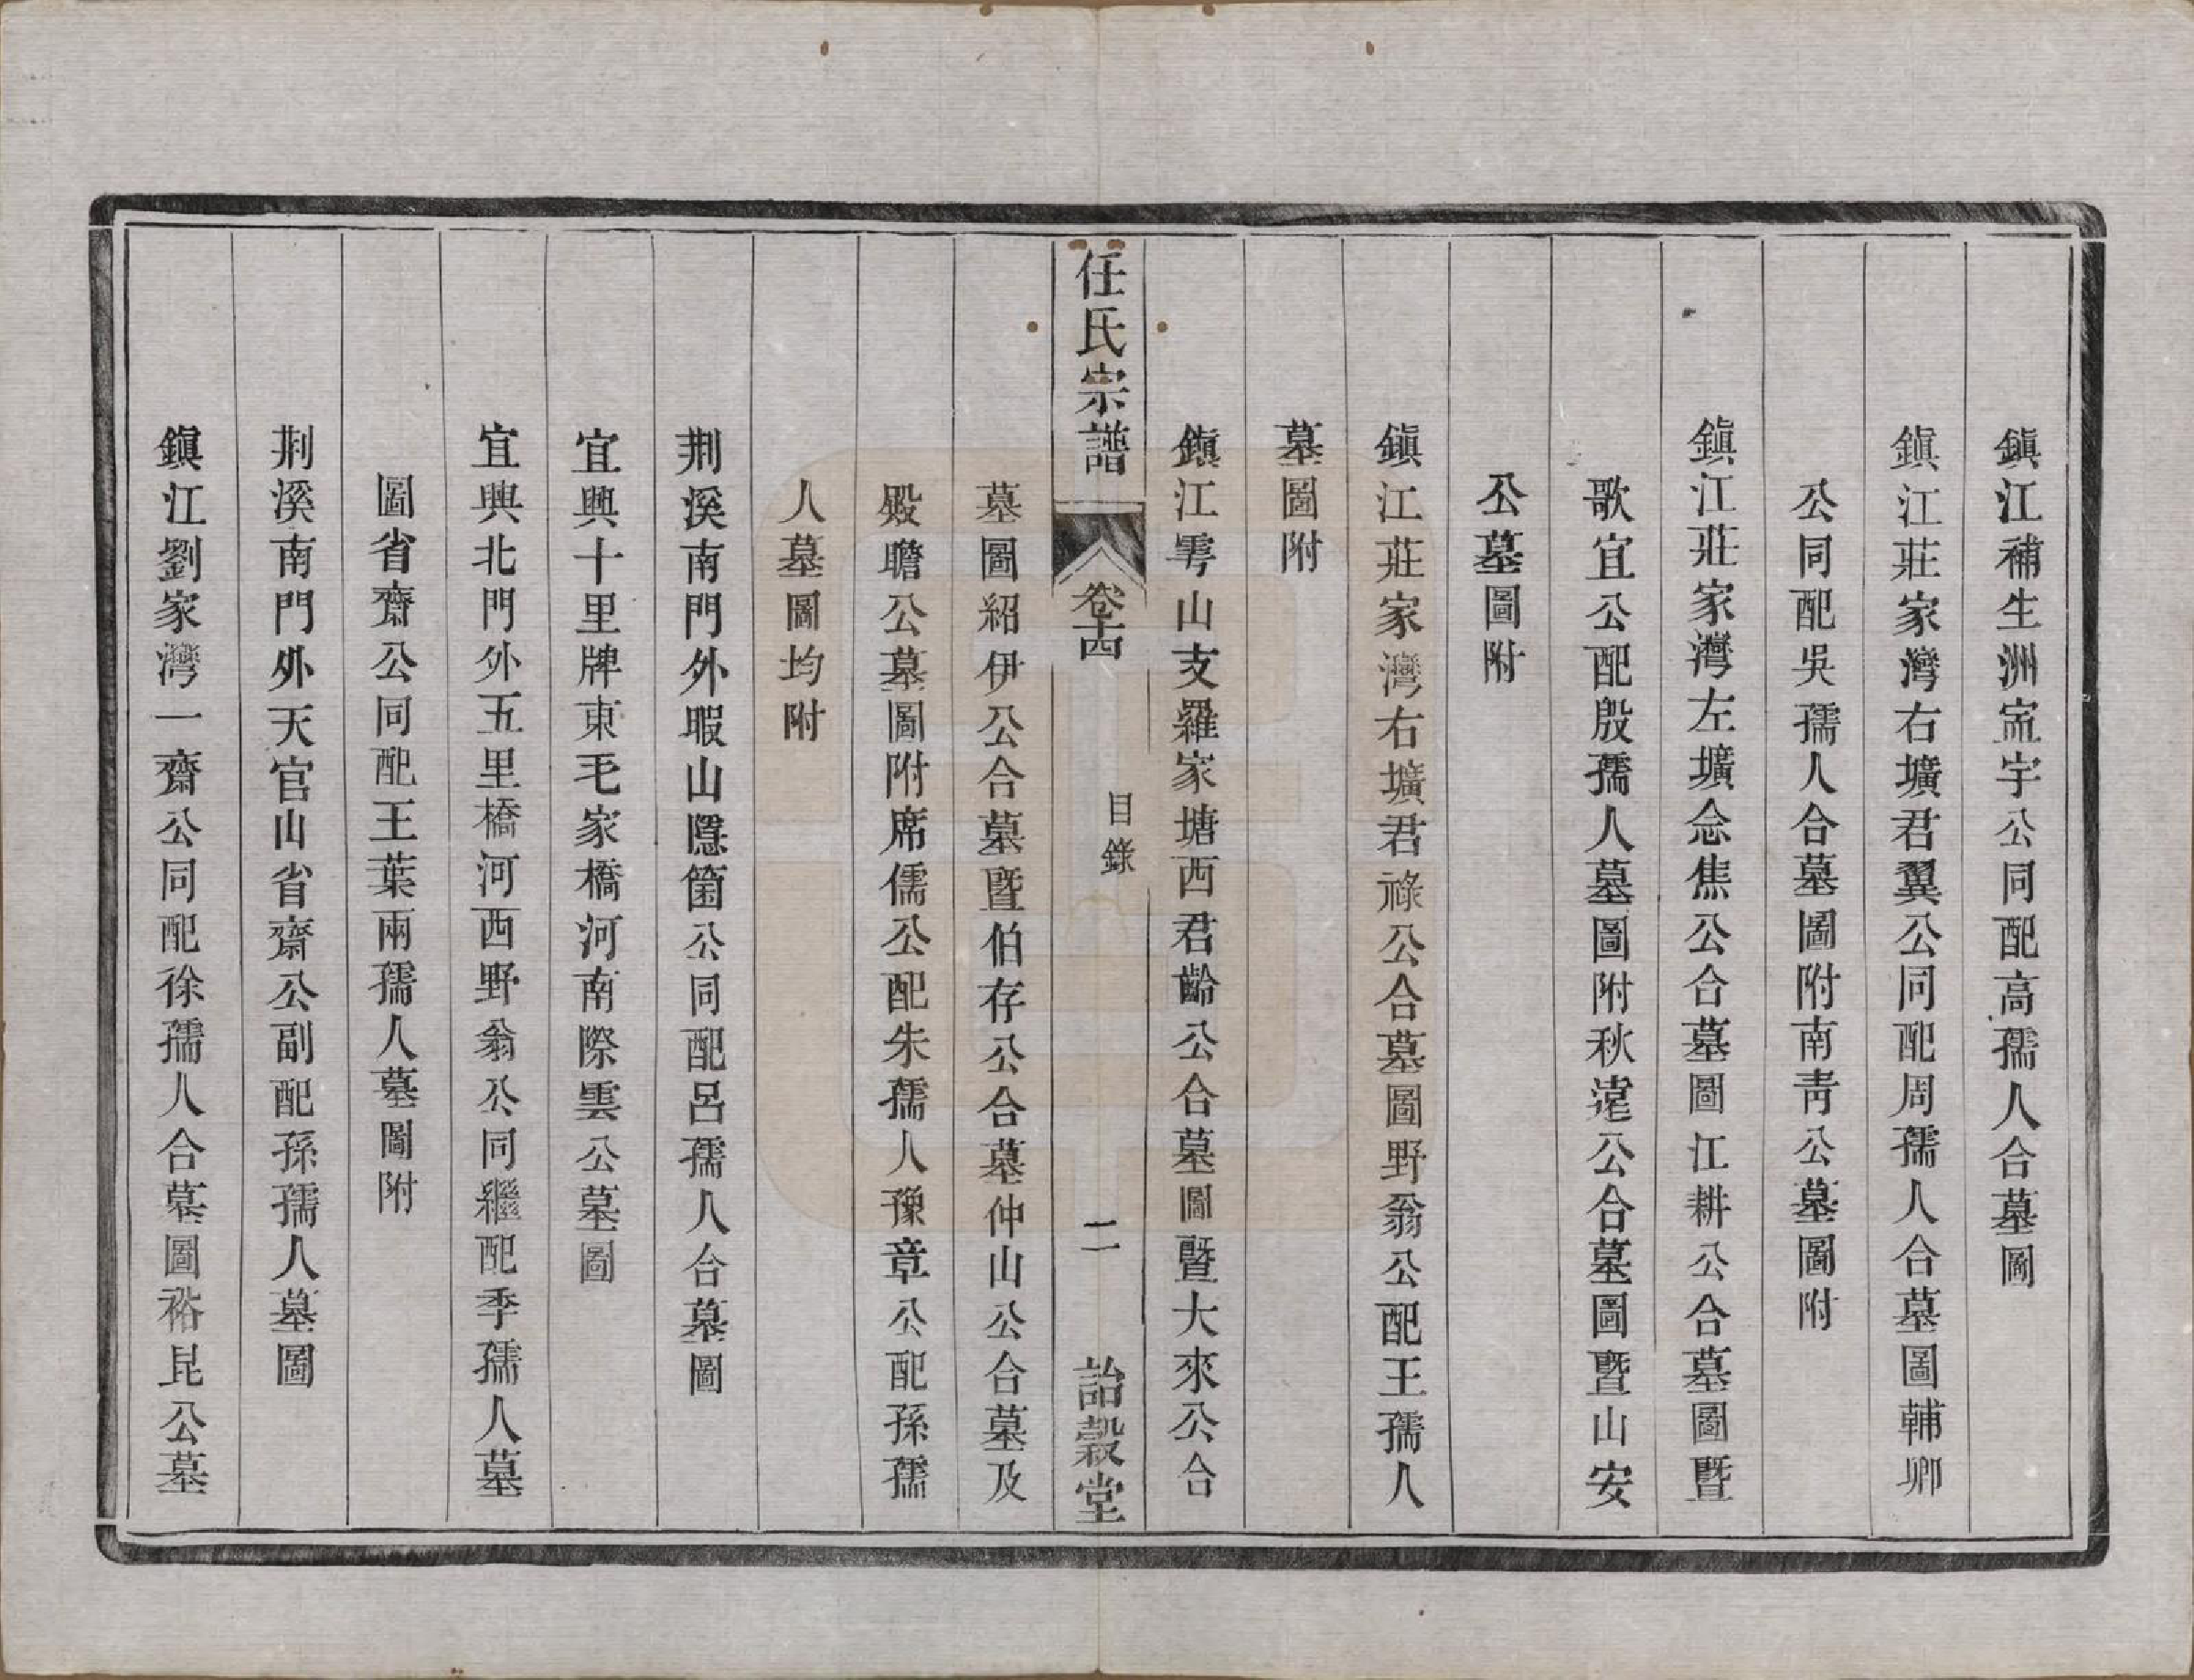 鎭江補生洲寍宇公同配高孺人合墓圖
鎭江莊家灣右壙君翼公同配周孺人合墓圖輔卿
公同配吳孺人合墓圖附南靑公墓圖附
鎭江莊家灣左壙念焦公合墓圖江耕公合墓圖暨
歌宜公配殷孺人墓圖附秋漟公合墓圖暨山安
公墓圖附
鎭江莊家灣右壙君祿公合墓圖野翁公配王孺人
墓圖附
鎭江雩山支羅家塘西君齡公合墓圖暨大來公合
任氏宗譜
卷十四
目錄
二
詒穀堂
墓圖紹伊公合墓暨伯存公合墓仲山公合墓及
殿瞻公墓圖附席儒公配朱孺人豫章公配孫孺
人墓圖均附
荆溪南門外瑕山隱箇公同配呂孺人合墓圖
宜興十里牌東毛家橋河南際雲公墓圖
宜興北門外五里橋河西野翁公同繼配季孺人墓
圖省齋公同配王葉兩孺人墓圖附
荆溪南門外天官山省齋公副配孫孺人墓圖
鎭江劉家灣一齋公同配徐孺人合墓圖裕昆公墓